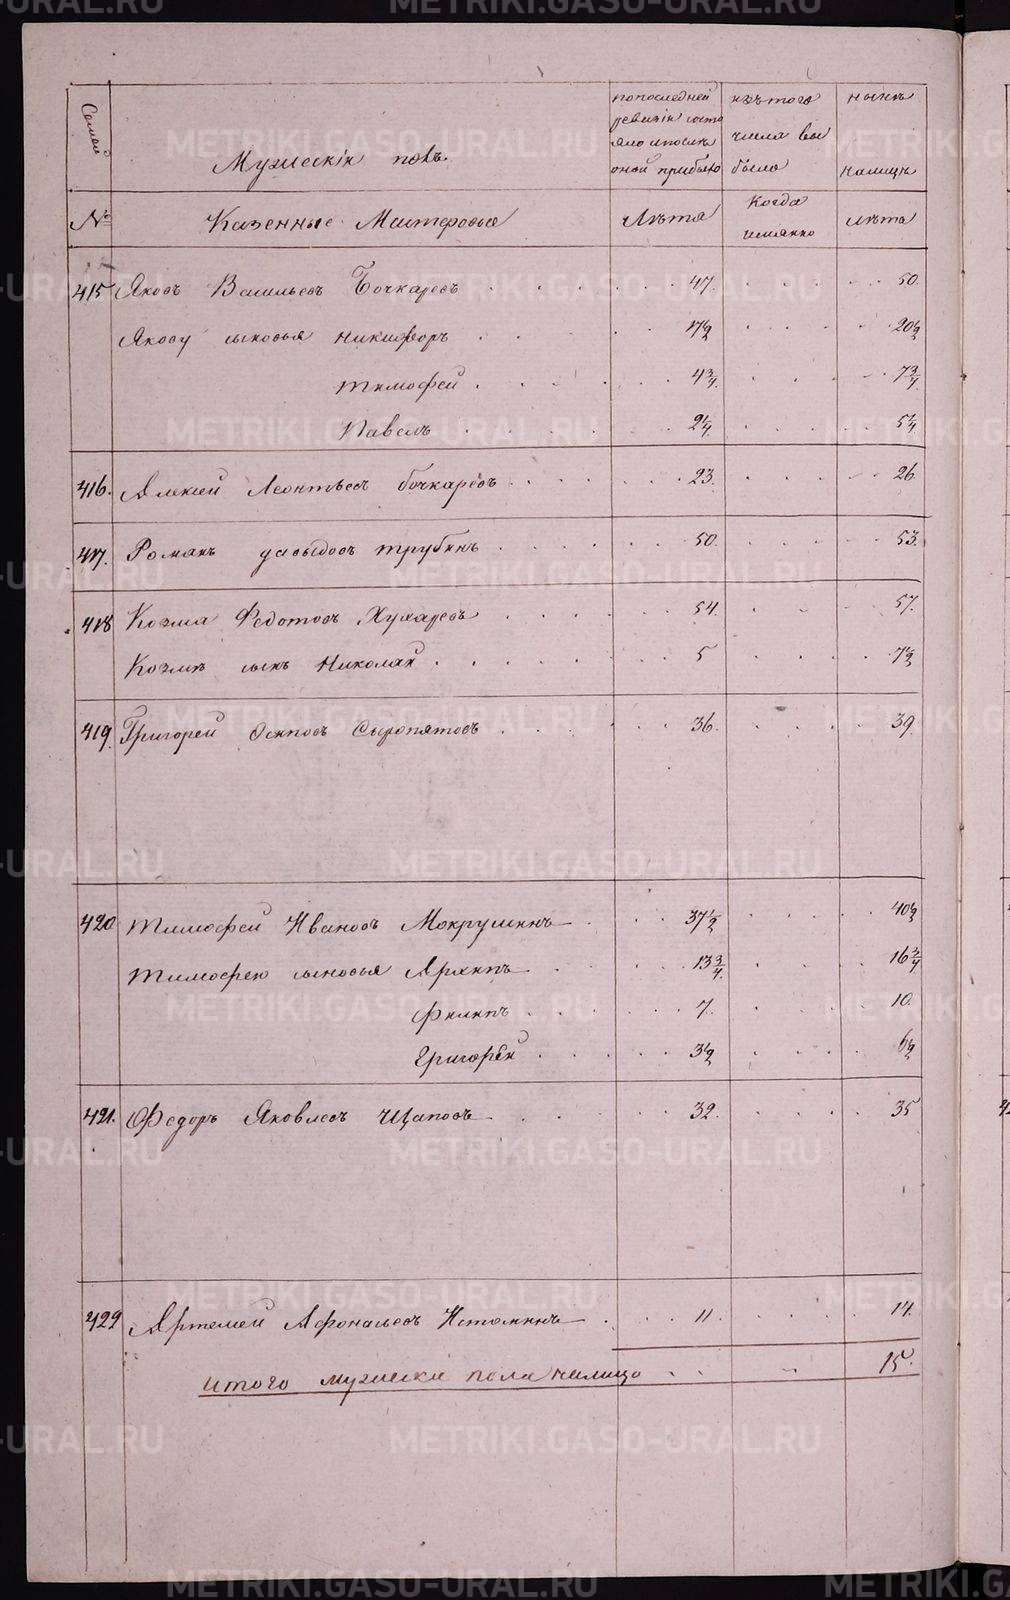 Семей
Мужескiй полъ.
по последней ревизiи состояло и после оной прибыло
изъ того числа выбыло
ныне налицо
№ Казенные Мастеровые Лѣта Когда именно лѣта
415 Яковъ Васильевъ Бочкаревъ 47. 50.
Якову сыновья Никифоръ 17½ 20½
Тимофей 4¾ 7¾
Павелъ 2¼ 5¼
416. Алексей Леонтьевъ бочкаревъ 23. 26
417. Романъ давыдовъ трубинъ 50. 53.
418 Козма Федотовъ Хухаревъ 54. 57.
Козмѣ сынъ Николай 5 7½
419. Григорей Осиповъ Сыропятовъ 36. 39.
420 Тимофей Ивановъ Мокрушинъ 37½ 40½
Тимофею сыновья Архипъ 13¾ 16¾
Филипъ 7. 10.
Григорей 3½ 6½
421. Федоръ Яковлевъ Щаповъ 32. 35
422 Артемей Афонасьевъ Истоминъ 11. 14.
итого мужеска пола налицо 15.